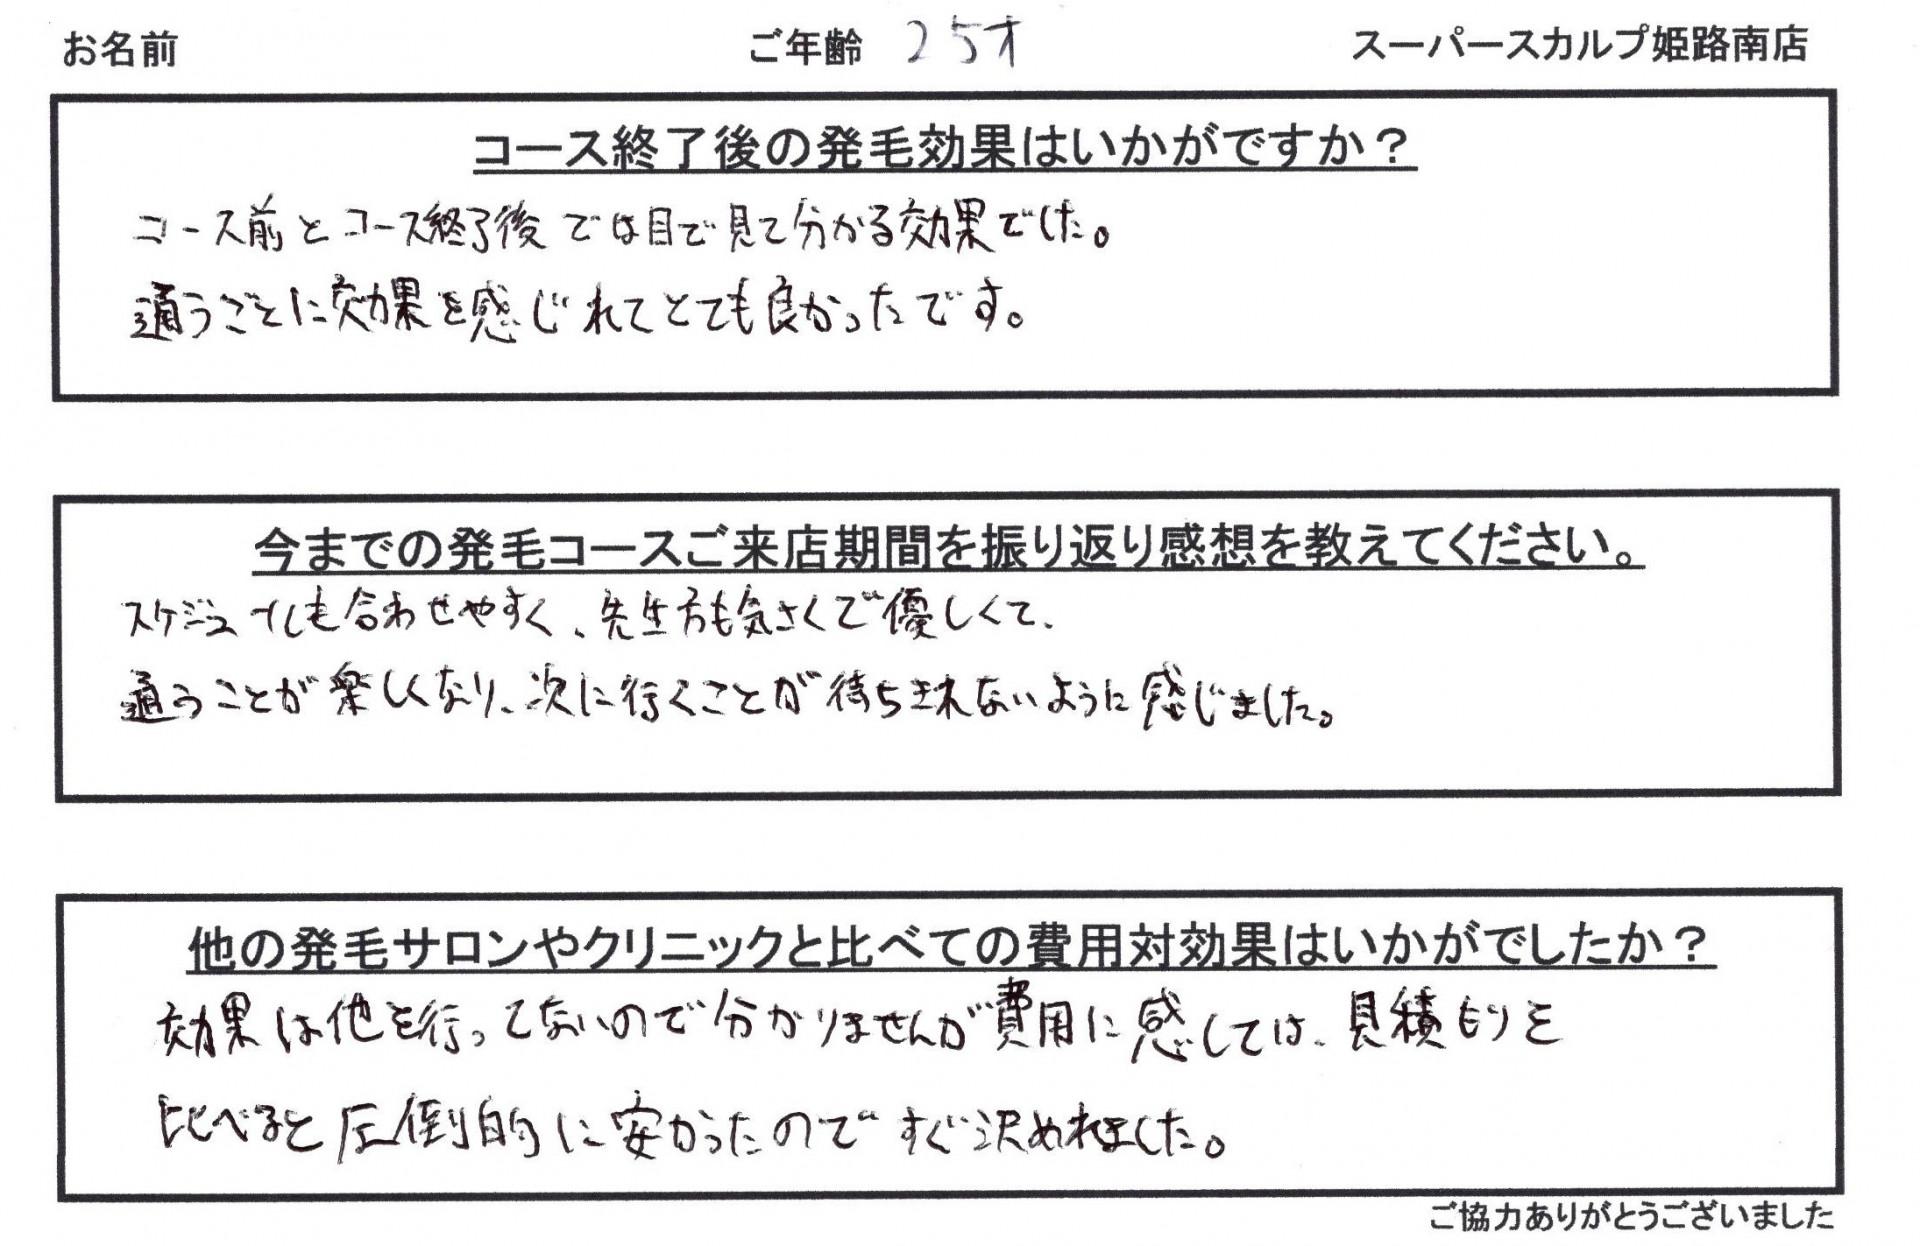 お名前 ご年齢 25才 スーパースカルプ姫路南店
コース終了後の発毛効果はいかがですか？
コース前とコース終了後では目で見て分かる効果でした。
通うごとに効果を感じれてとても良かったです。
今までの発毛コースご来店期間を振り返り感想を教えてください。
スケジュールも合わせやすく、先生方も気さくで優しくて、
通うことが楽しくなり、次に行くことが待ちきれないように感じました。
他の発毛サロンやクリニックと比べての費用対効果はいかがでしたか？
効果は他を行ってないので分かりませんが費用に感しては、見積もりを
比べると圧倒的に安かったのですぐ決めれました。
ご協力ありがとうございました